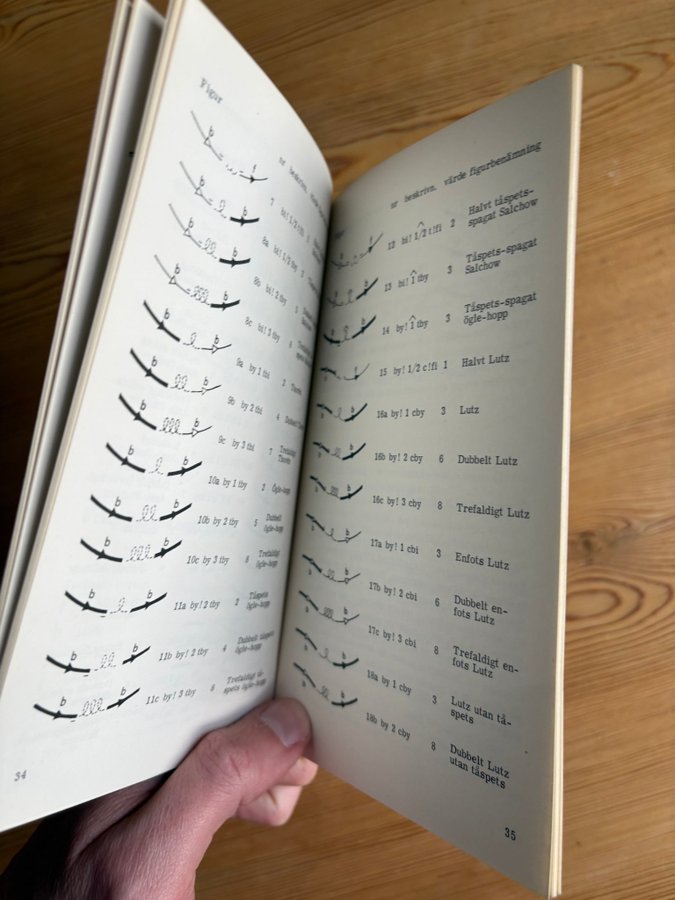 Figur
nr beskrivn. värde
7 bi! 1/2 tfi
8a bi! 1/2 tby
8b bi! 2 tby 5
8c bi! 3 tby 6
9a by 1 tbi 2
9b by 2 tbi 4
9c by 3 tbi 7 Trefaldigt
10a by 1 tby 2 Ögle-hopp
10b by 2 tby 5 Dubbelt
ögle-hopp
10c by 3 tby 8 Trefaldigt
ögle-hopp
11a by! 2 tby 2 Tåspets
ögle-hopp
11b by! 2 tby 4 Dubbelt tåspets
ögle-hopp
11c by! 3 tby 6 Trefaldigt tå-
spets ögle-hopp
34
nr beskrivn. värde figurbenämning
12 bi! 1/2 t!fi 2 Halvt tåspets-
spagat Salchow
13 bi! 1 tby 3 Tåspets-spagat
Salchow
14 by! 1 tby 3 Tåspets-spagat
ögle-hopp
15 by! 1/2 c!fi 1 Halvt Lutz
16a by! 1 cby 3 Lutz
16b by! 2 cby 6 Dubbelt Lutz
16c by! 3 cby 8 Trefaldigt Lutz
17a by! 1 cbi 3 Enfots Lutz
17b by! 2 cbi 6 Dubbelt en-
fots Lutz
17c by! 3 cbi 8 Trefaldigt en-
fots Lutz
18a by 1 cby 3 Lutz utan tå-
spets
18b by 2 cby 8 Dubbelt Lutz
utan tåspets
35